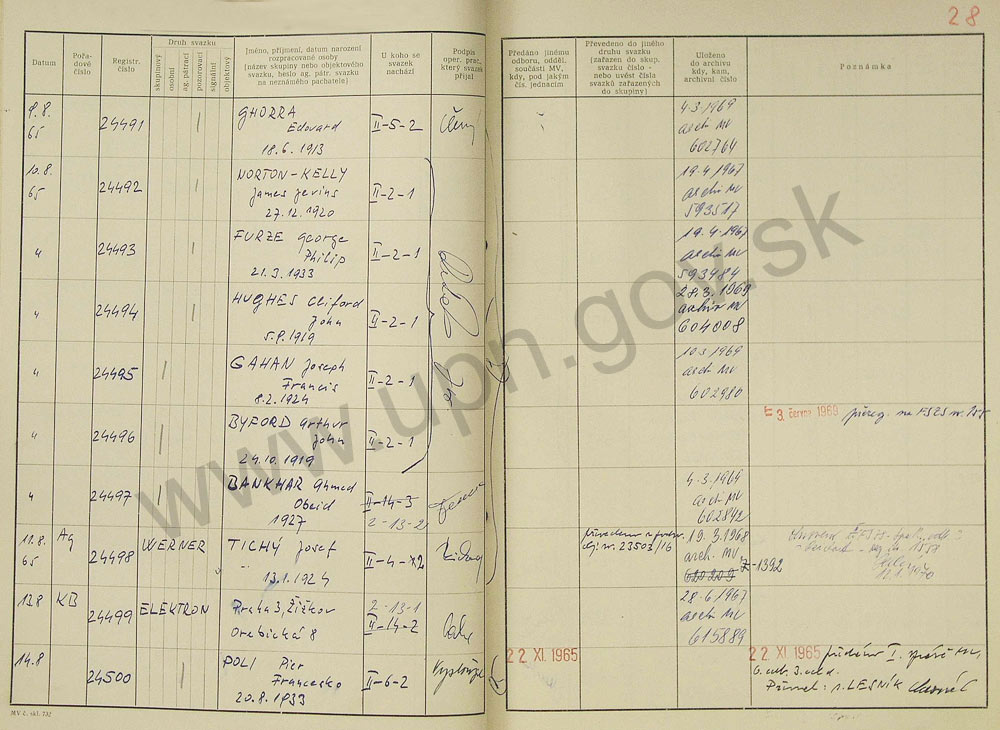 28
Datum
Pořadové číslo
Registr. číslo
Druh svazku
skupinový
osobní
ag. pátrací
pozorovací
signální
objektový
Jméno, příjmení, datum narození
rozpracované osoby
(název skupiny nebo objektového
svazku, heslo ag. pátr. svazku
na neznámého pachatele)
U koho se
svazek
nachází
Podpis
oper. prac.,
který svazek
přijal
Předáno jinému
odboru, odděl.
součásti MV,
kdy, pod jakým
čís. jednacím
Převedeno do jiného
druhu svazku
(zařazen do skup.
svazku číslo -
nebo uvést čísla
svazků zařazených
do skupiny)
Uloženo
do archivu
kdy, kam,
archivní číslo
Poznámka
9.8.
65
24491
GHORRA
Edouard
18.6.1913
II-5-2
4.3.1969
arch MV
602764
10.8.
65
24492
NORTON-KELLY
James Jevins
27.12.1920
II-2-1
19.4.1967
archiv MV
593517
"
24493
FURZE George
Philip
21.3.1933
II-2-1
19.4.1967
archiv MV
593484
"
24494
HUGHES Cliford
John
5.9.1919
II-2-1
28.3.1969
archiv MV
604008
"
24495
GAHAN Joseph
Francis
8.2.1924
II-2-1
10.3.1969
arch MV
602980
"
24496
BYFORD Arthur
John
24.10.1919
II-2-1
3. června 1969
přereg. na FSZS
"
24497
BANKHAR Ahmed
Obeid
1927
II-14-3
2-13-2
4.3.1969
arch MV
602842
11.8.
65
Ag
24498
WERNER
TICHÝ Josef
13.1.1924
II-4-
23503/16
19.3.1968
arch. MV
620209
Z-1392
13.8
KB
24499
ELEKTRON
Praha 3, Žižkov
Orebická 8
2-13-1
II-14-2
28.6.1967
archiv MV
615889
14.8
24500
POLI Pier
Francesko
20.8.1933
II-6-2
22. XI. 1965
22. XI. 1965
6. odb. 3. odd.
LESNÍK
MV č. skl. 732
www.upn.gov.sk